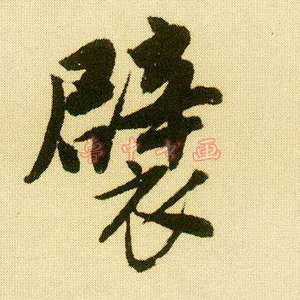 襞
中书画